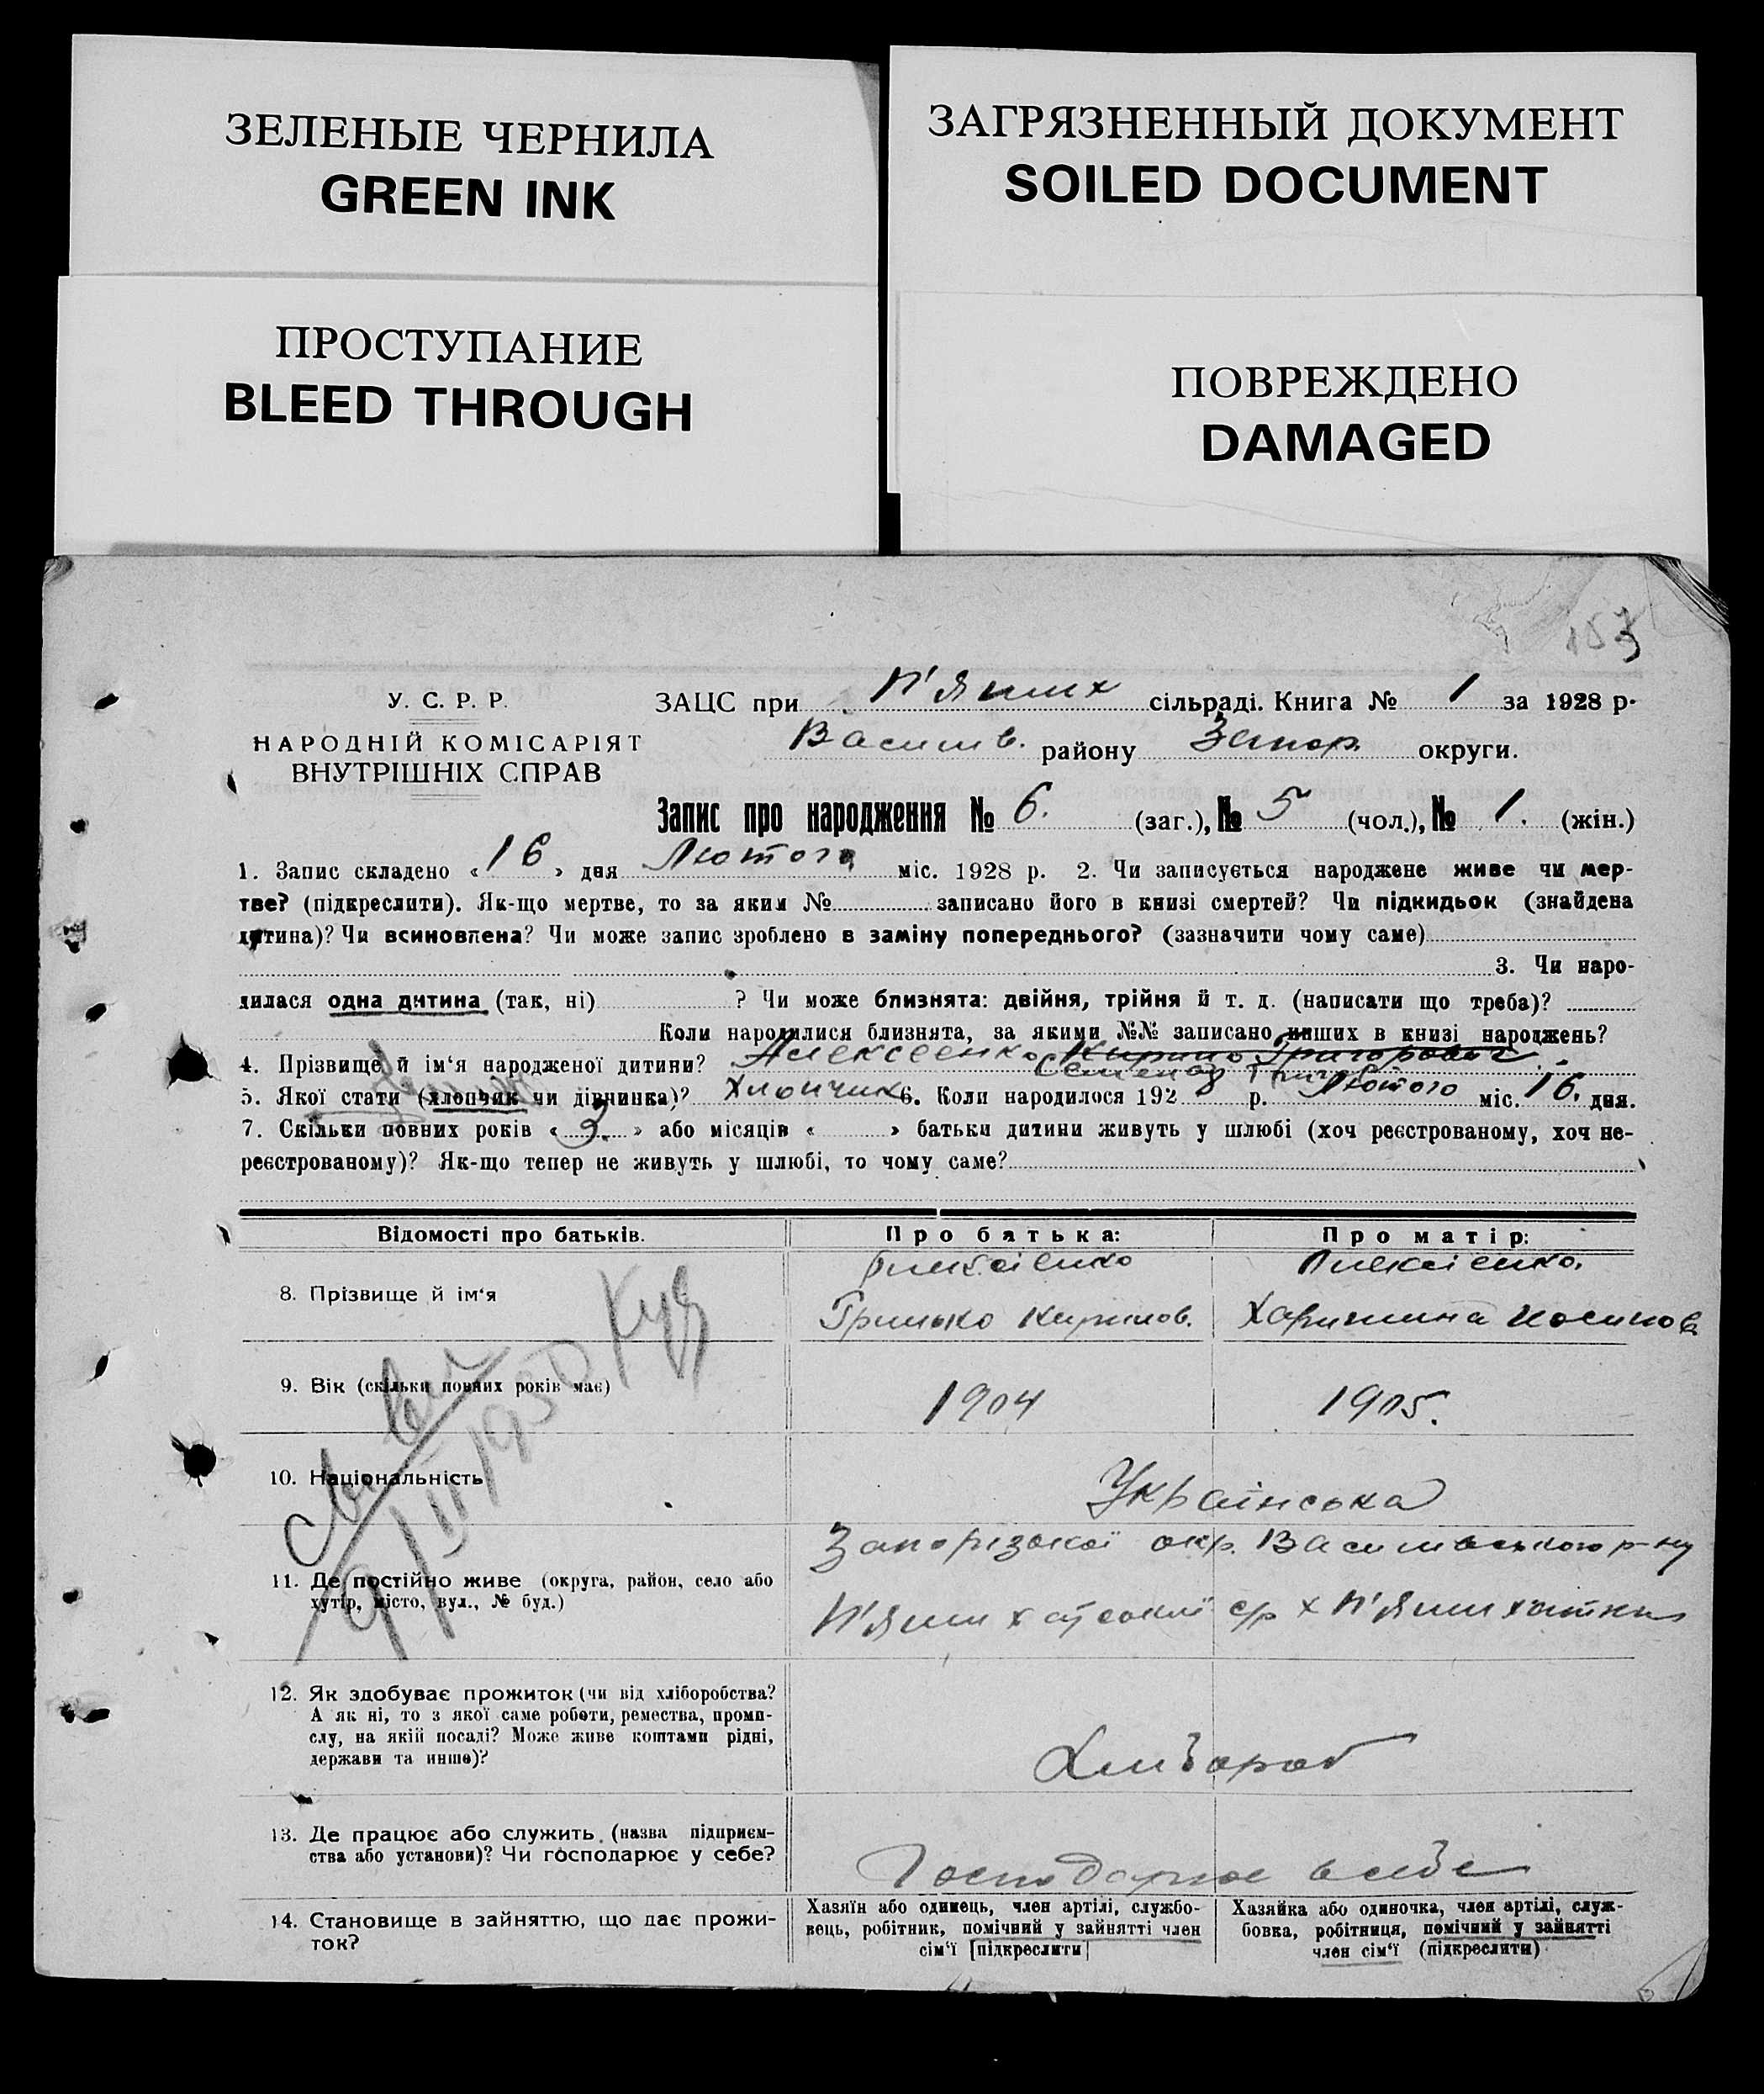 ЗЕЛЕНЫЕ ЧЕРНИЛА
GREEN INK
ЗАГРЯЗНЕННЫЙ ДОКУМЕНТ
SOILED DOCUMENT
ПРОСТУПАНИЕ
BLEED THROUGH
ПОВРЕЖДЕНО
DAMAGED
У. С. Р. Р.
НАРОДНІЙ КОМІСАРІЯТ
ВНУТРІШНІХ СПРАВ
ЗАЦС при П'яших сільраді. Книга № 1 за 1928 р.
Васил. району Запор. округи.
Запис про народження № 6. (заг.), № 5 (чол.), № 1. (жін.)
1. Запис складено «16» дня Лютого міс. 1928 р. 2. Чи записується народжене живе чи мер-
тве? (підкреслити). Як-що мертве, то за яким № записано його в книзі смертей? Чи підкидьок (знайдена
дитина)? Чи всиновлена? Чи може запис зроблено в заміну попереднього? (зазначити чому саме)
3. Чи наро-
дилася одна дитина (так, ні) ? Чи може близнята: двійня, трійня й т. д. (написати що треба)?
Коли народилися близнята, за якими №№ записано инших в книзі народжень?
4. Прізвище й ім‘я народженої дитини? Алексеенко Кирило Григорович
5. Якої стати (хлопчик чи дівчинка)? Хлопчик 6. Коли народилося 192 р. Лютого міс. 16. дня.
7. Скільки повних років «3.» або місяців « » батьки дитини живуть у шлюбі (хоч реєстрованому, хоч не-
реєстрованому)? Як-що тепер не живуть у шлюбі, то чому саме?
Відомості про батьків.
Про батька:
Про матір:
8. Прізвище й ім‘я
Алексіенко
Грицько Кирилов.
Алексіенко.
Харитина
9. Вік (скільки повних років має)
1904
1905.
10. Національність
Українська
11. Де постійно живе (округа, район, село або
хутір, місто, вул., № буд.)
Запорізької окр. Василівського р-ну
П'яти хатської с/р х П'яти хатки
9/III 1930
12. Як здобуває прожиток (чи від хліборобства?
А як ні, то з якої саме роботи, ремества, промп-
слу, на якій посаді? Може живе коштами рідні,
держави та инше)?
Хлібороб
13. Де працює або служить (назва підприєм-
ства або установи)? Чи господарює у себе?
Господарює в себе
14. Становище в зайняттю, що дає прожи-
ток?
Хазяїн або одинець, член артілі, службо-
вець, робітник, помічний у зайнятті член
сім‘ї [підкреслити]
Хазяйка або одиночка, член артілі, служ-
бовка, робітниця, помічний у зайнятті
член сім‘ї (підкреслити)